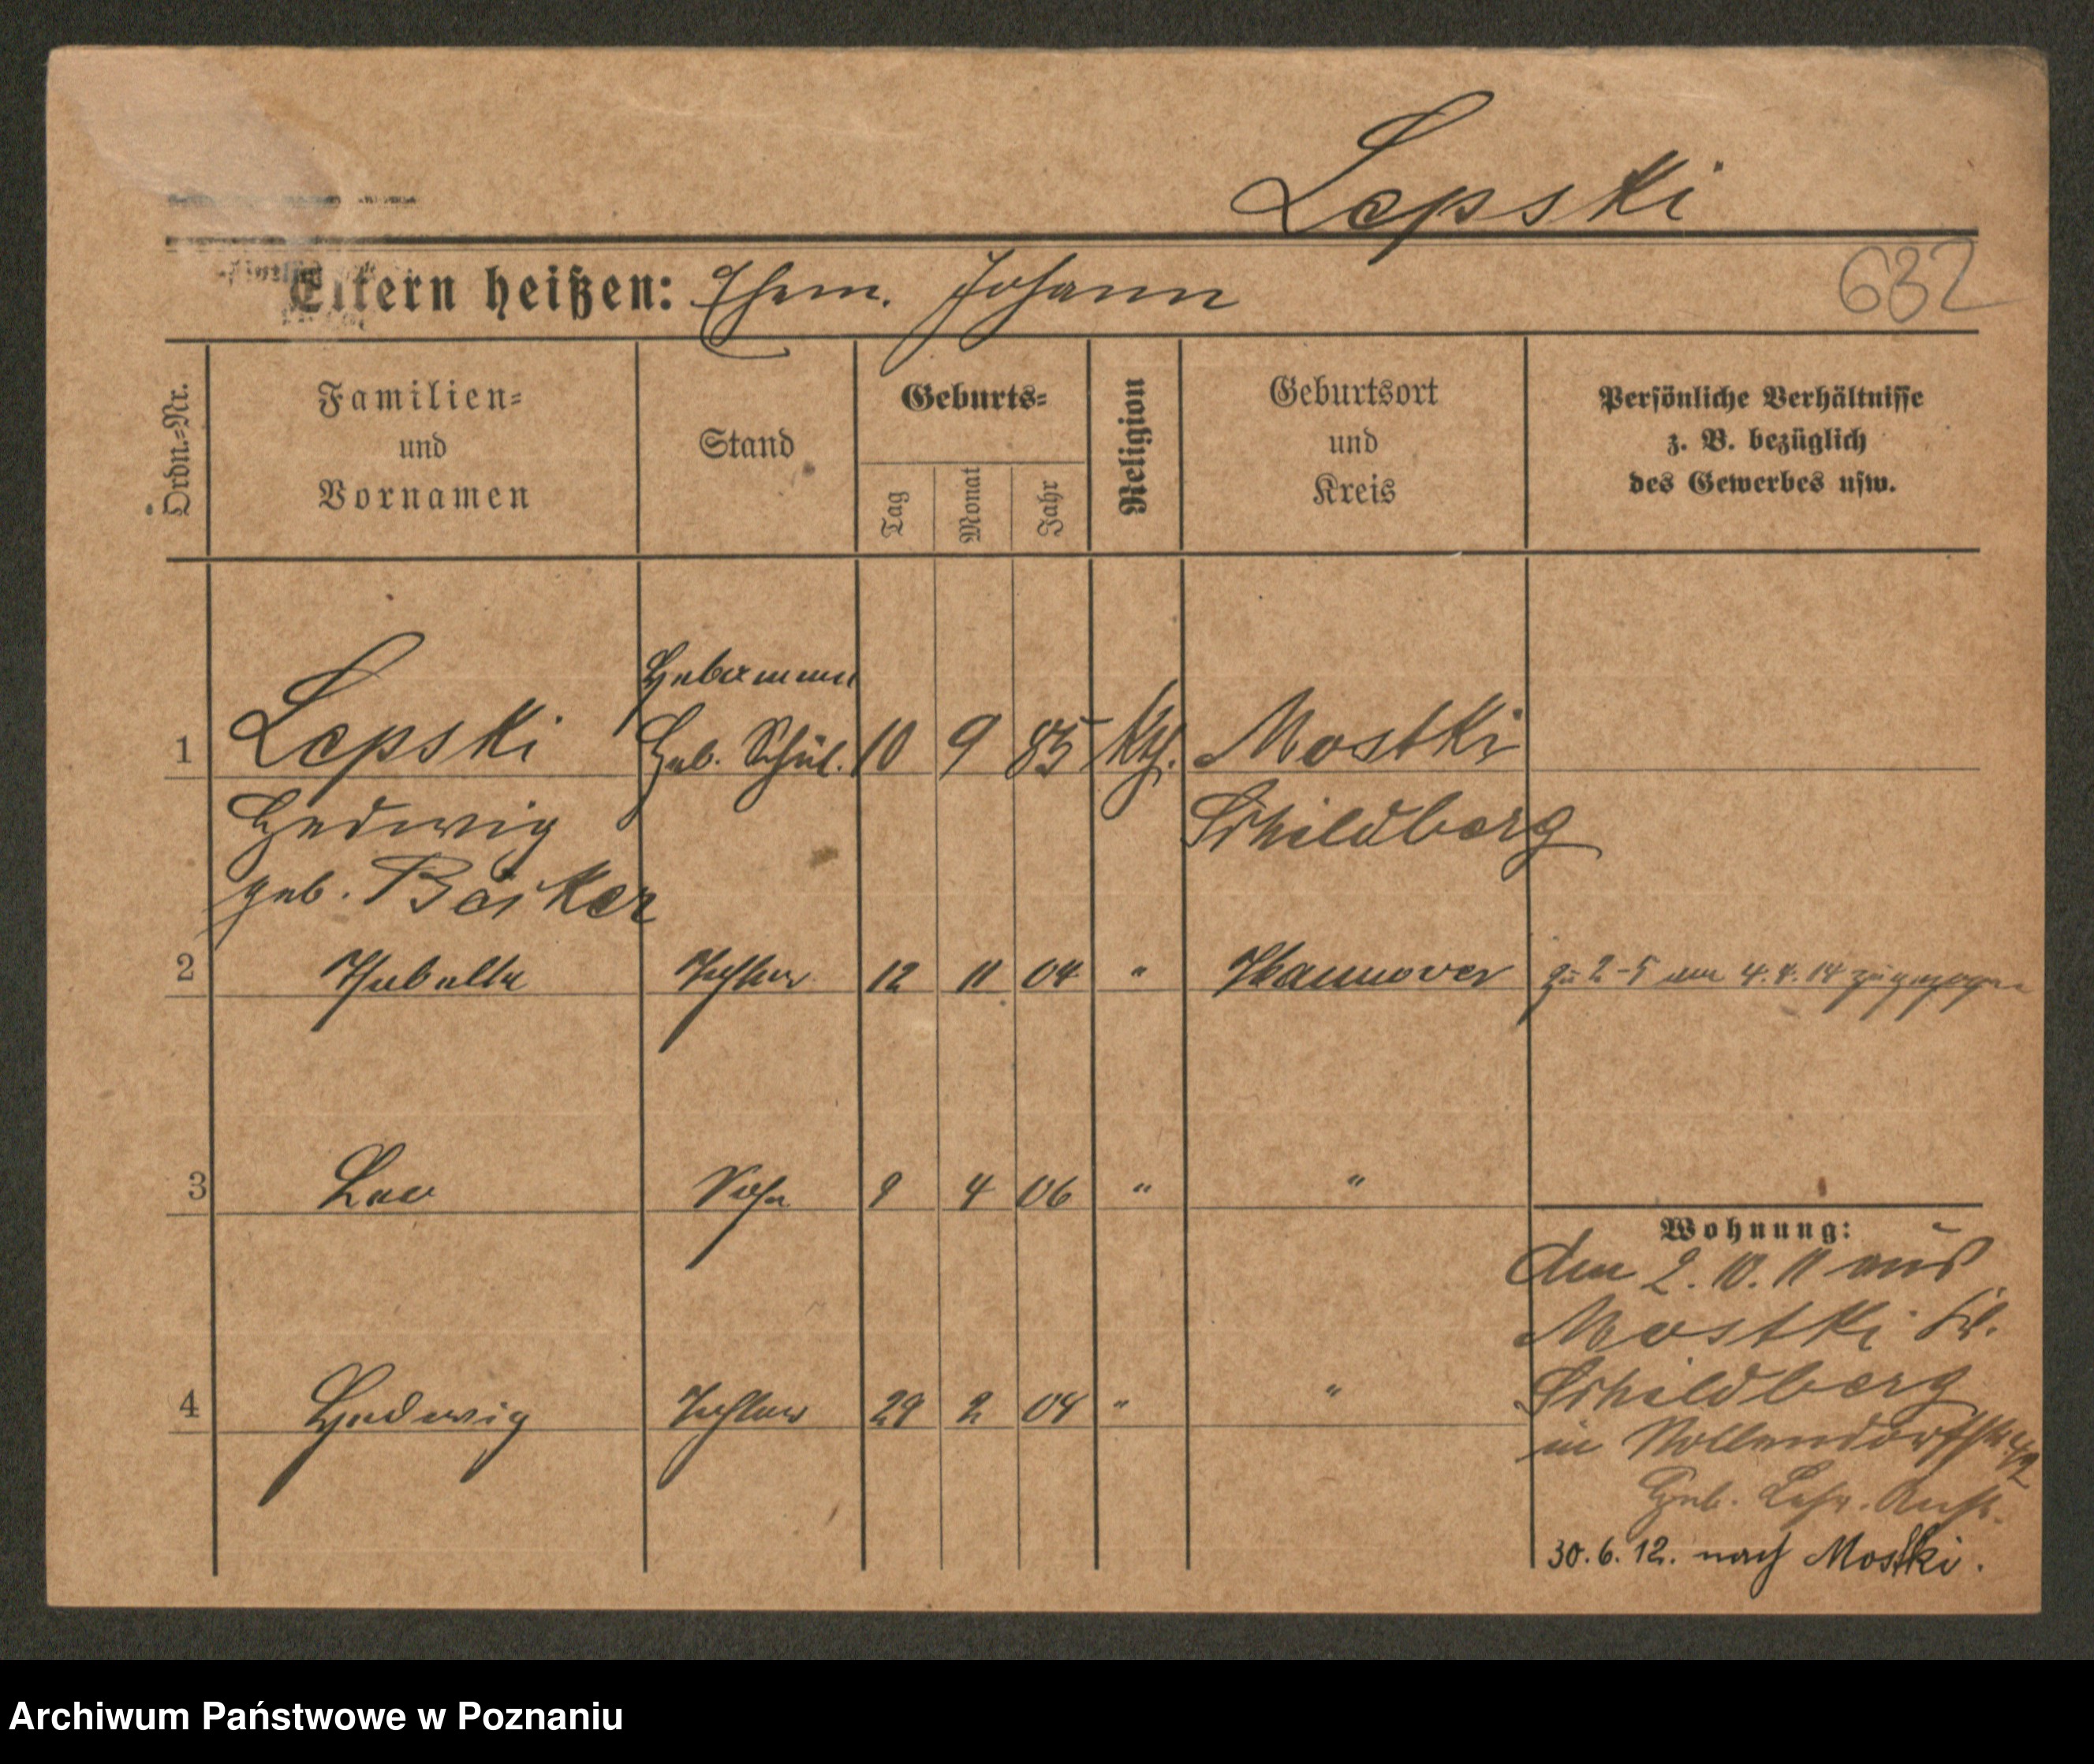 Lepski
Eltern heißen: Ehem. Johann
632
Ordn.=Nr.
Familien=
und
Vornamen
Stand
Geburts=
Tag
Monat
Jahr
Religion
Geburtsort
und
Kreis
Persönliche Verhältnisse
z. B. bezüglich
des Gewerbes usw.
Hebamme
1 Lepski Heb. Schül. 10 9 85 kth. Mostki
Hedwig Schildberg
geb.
2 Isabella Tochter 12 11 04 " Hannover zu 2-5 am 4. 4. 14 zugezogen
3 Leo Sohn 9 4 06 " "
Wohnung:
Am 2. 10. 11 aus
Mostki Kr.
Schildberg
4 Hedwig Tochter 29 2 08 " "
in Nollendorfstr.
Heb. Lehr. Anst.
30. 6. 12. nach Mostki.
Archiwum Państwowe w Poznaniu